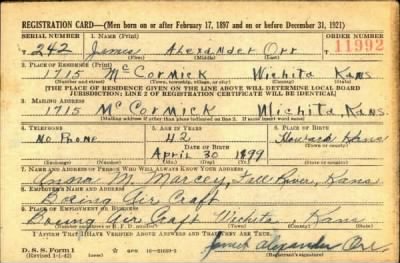 REGISTRATION CARD—(Men born on or after February 17, 1897 and on or before December 31, 1921)
SERIAL NUMBER 1. NAME (Print) ORDER NUMBER
242 James Alexander Orr 11992
(First) (Middle) (Last)
2. PLACE OF RESIDENCE (Print)
1715 McCormick Wichita Kans
(Number and street) (Town, township, village, or city) (County) (State)
[THE PLACE OF RESIDENCE GIVEN ON THE LINE ABOVE WILL DETERMINE LOCAL BOARD
JURISDICTION; LINE 2 OF REGISTRATION CERTIFICATE WILL BE IDENTICAL]
3. MAILING ADDRESS
1715 McCormick Wichita, Kans.
[Mailing address if other than place indicated on line 2. If same insert word same]
4. TELEPHONE 5. AGE IN YEARS 6. PLACE OF BIRTH
No Phone 42 Howard
DATE OF BIRTH
April 30 1899
(Exchange) (Number) (Mo.) (Day) (Yr.) (State or country)
7. NAME AND ADDRESS OF PERSON WHO WILL ALWAYS KNOW YOUR ADDRESS
M. Marcey, Fall River, Kans
8. EMPLOYER'S NAME AND ADDRESS
Boeing Air Craft
9. PLACE OF EMPLOYMENT OR BUSINESS
Boeing Air Craft Wichita, Kans
(Number and street or R. F. D. number) (Town) (County) (State)
I AFFIRM THAT I HAVE VERIFIED ABOVE ANSWERS AND THAT THEY ARE TRUE.
D. S. S. Form 1 James Alexander Orr
(Revised 1-1-42) (Registrant's signature)